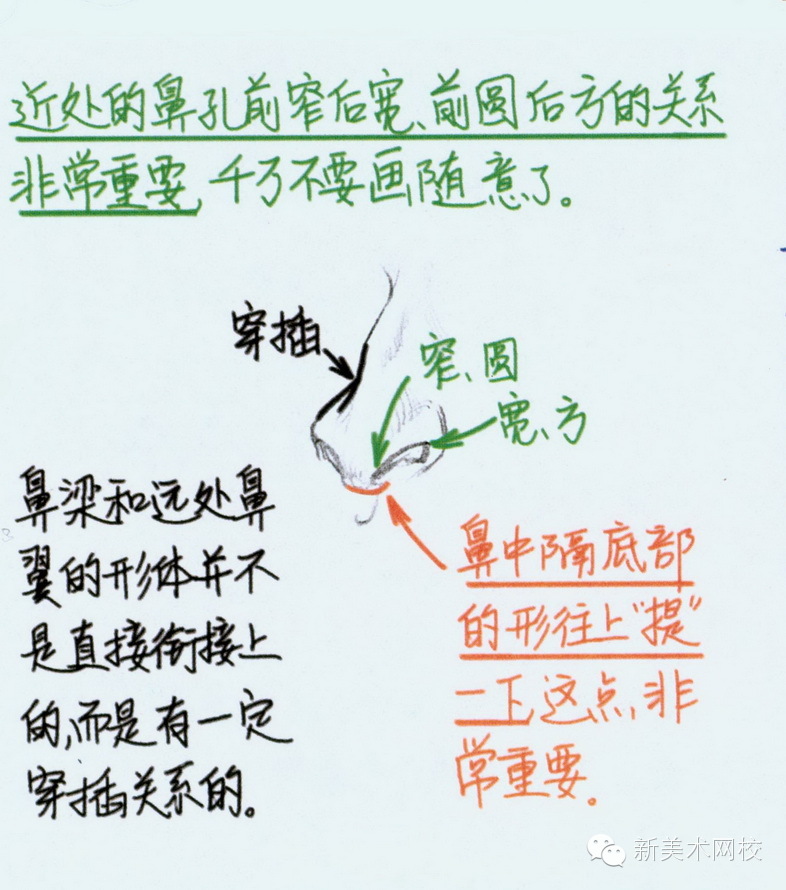 近处的鼻孔前窄后宽、前圆后方的关系
非常重要,千万不要画随意了。
穿插
窄、圆
宽、方
鼻梁和远处鼻
翼的形体并不
是直接衔接上
的,而是有一定
穿插关系的。
鼻中隔底部
的形往上“提”
一下,这点,非
常重要。
新美术网校